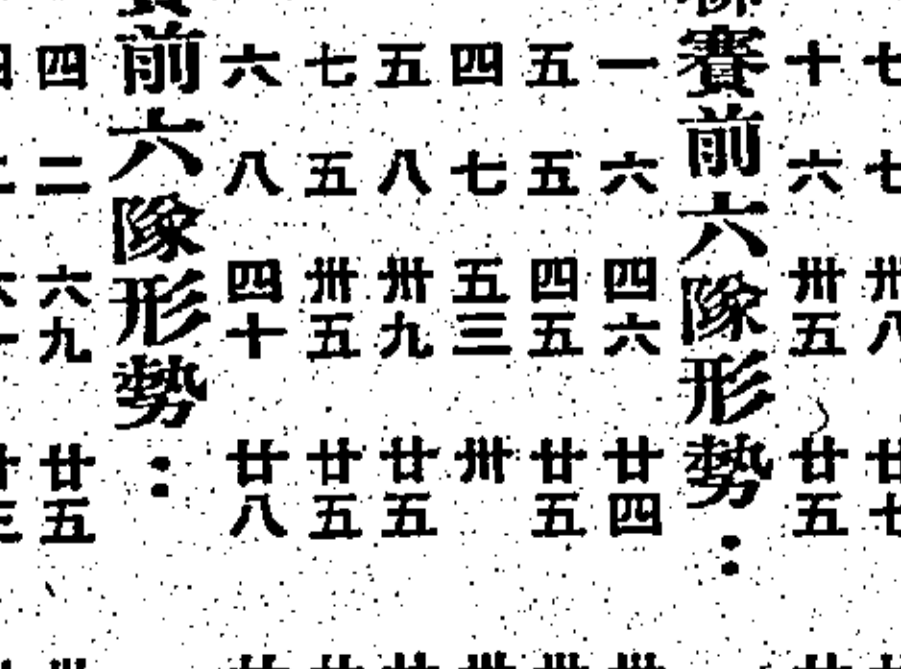 七 七 卅八 廿七
十 六 卅五 廿五
賽前六隊形勢：
一 六 四六 廿四
五 五 四五 廿五
四 七 五三 卅
五 八 卅九 廿五
七 五 卅五 廿五
六 八 四十 廿八
前六隊形勢：
四 二 六九 廿五